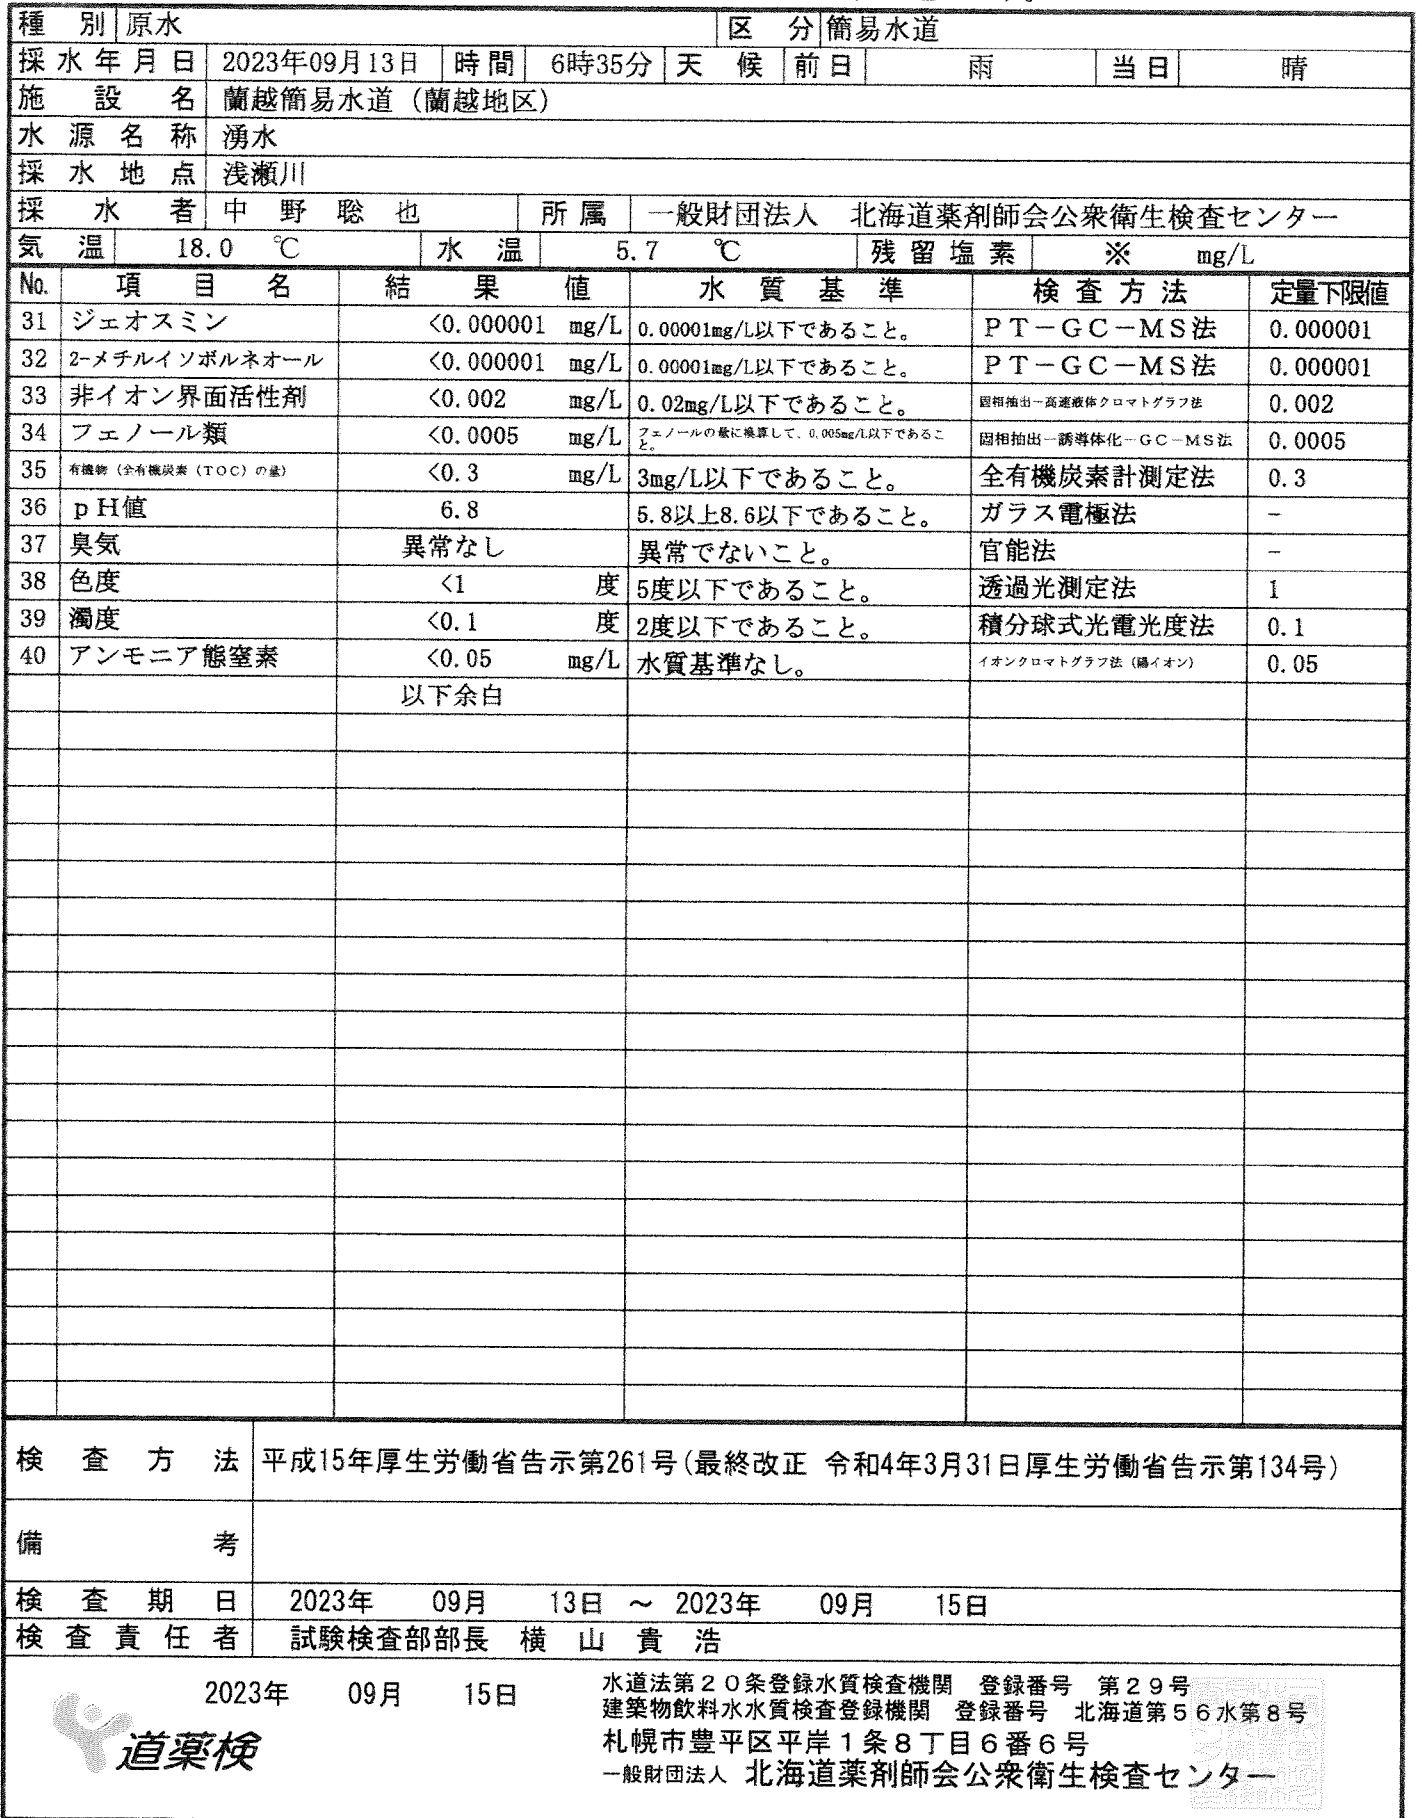 種別 原水 区分 簡易水道
採水年月日 2023年09月13日 時間 6時35分 天候 前日 雨 当日 晴
施設名 蘭越簡易水道（蘭越地区）
水源名称 湧水
採水地点 浅瀬川
採水者 中野聡也 所属 一般財団法人 北海道薬剤師会公衆衛生検査センター
気温 18.0 ℃ 水温 5.7 ℃ 残留塩素 ※ mg/L
No. 項目名 結果値 水質基準 検査方法 定量下限値
31 ジェオスミン <0.000001 mg/L 0.00001mg/L以下であること。 PT－GC－MS法 0.000001
32 2-メチルイソボルネオール <0.000001 mg/L 0.00001mg/L以下であること。 PT－GC－MS法 0.000001
33 非イオン界面活性剤 <0.002 mg/L 0.02mg/L以下であること。 固相抽出－高速液体クロマトグラフ法 0.002
34 フェノール類 <0.0005 mg/L フェノールの量に換算して、0.005mg/L以下であること。 固相抽出－誘導体化－GC－MS法 0.0005
35 有機物（全有機炭素（TOC）の量） <0.3 mg/L 3mg/L以下であること。 全有機炭素計測定法 0.3
36 pH値 6.8 5.8以上8.6以下であること。 ガラス電極法 －
37 臭気 異常なし 異常でないこと。 官能法 －
38 色度 <1 度 5度以下であること。 透過光測定法 1
39 濁度 <0.1 度 2度以下であること。 積分球式光電光度法 0.1
40 アンモニア態窒素 <0.05 mg/L 水質基準なし。 イオンクロマトグラフ法（陽イオン） 0.05
以下余白
検査方法 平成15年厚生労働省告示第261号(最終改正 令和4年3月31日厚生労働省告示第134号)
備考
検査期日 2023年 09月 13日 ～ 2023年 09月 15日
検査責任者 試験検査部部長 横山貴浩
2023年 09月 15日
水道法第20条登録水質検査機関 登録番号 第29号
建築物飲料水水質検査登録機関 登録番号 北海道第56水第8号
札幌市豊平区平岸1条8丁目6番6号
一般財団法人 北海道薬剤師会公衆衛生検査センター
道薬検